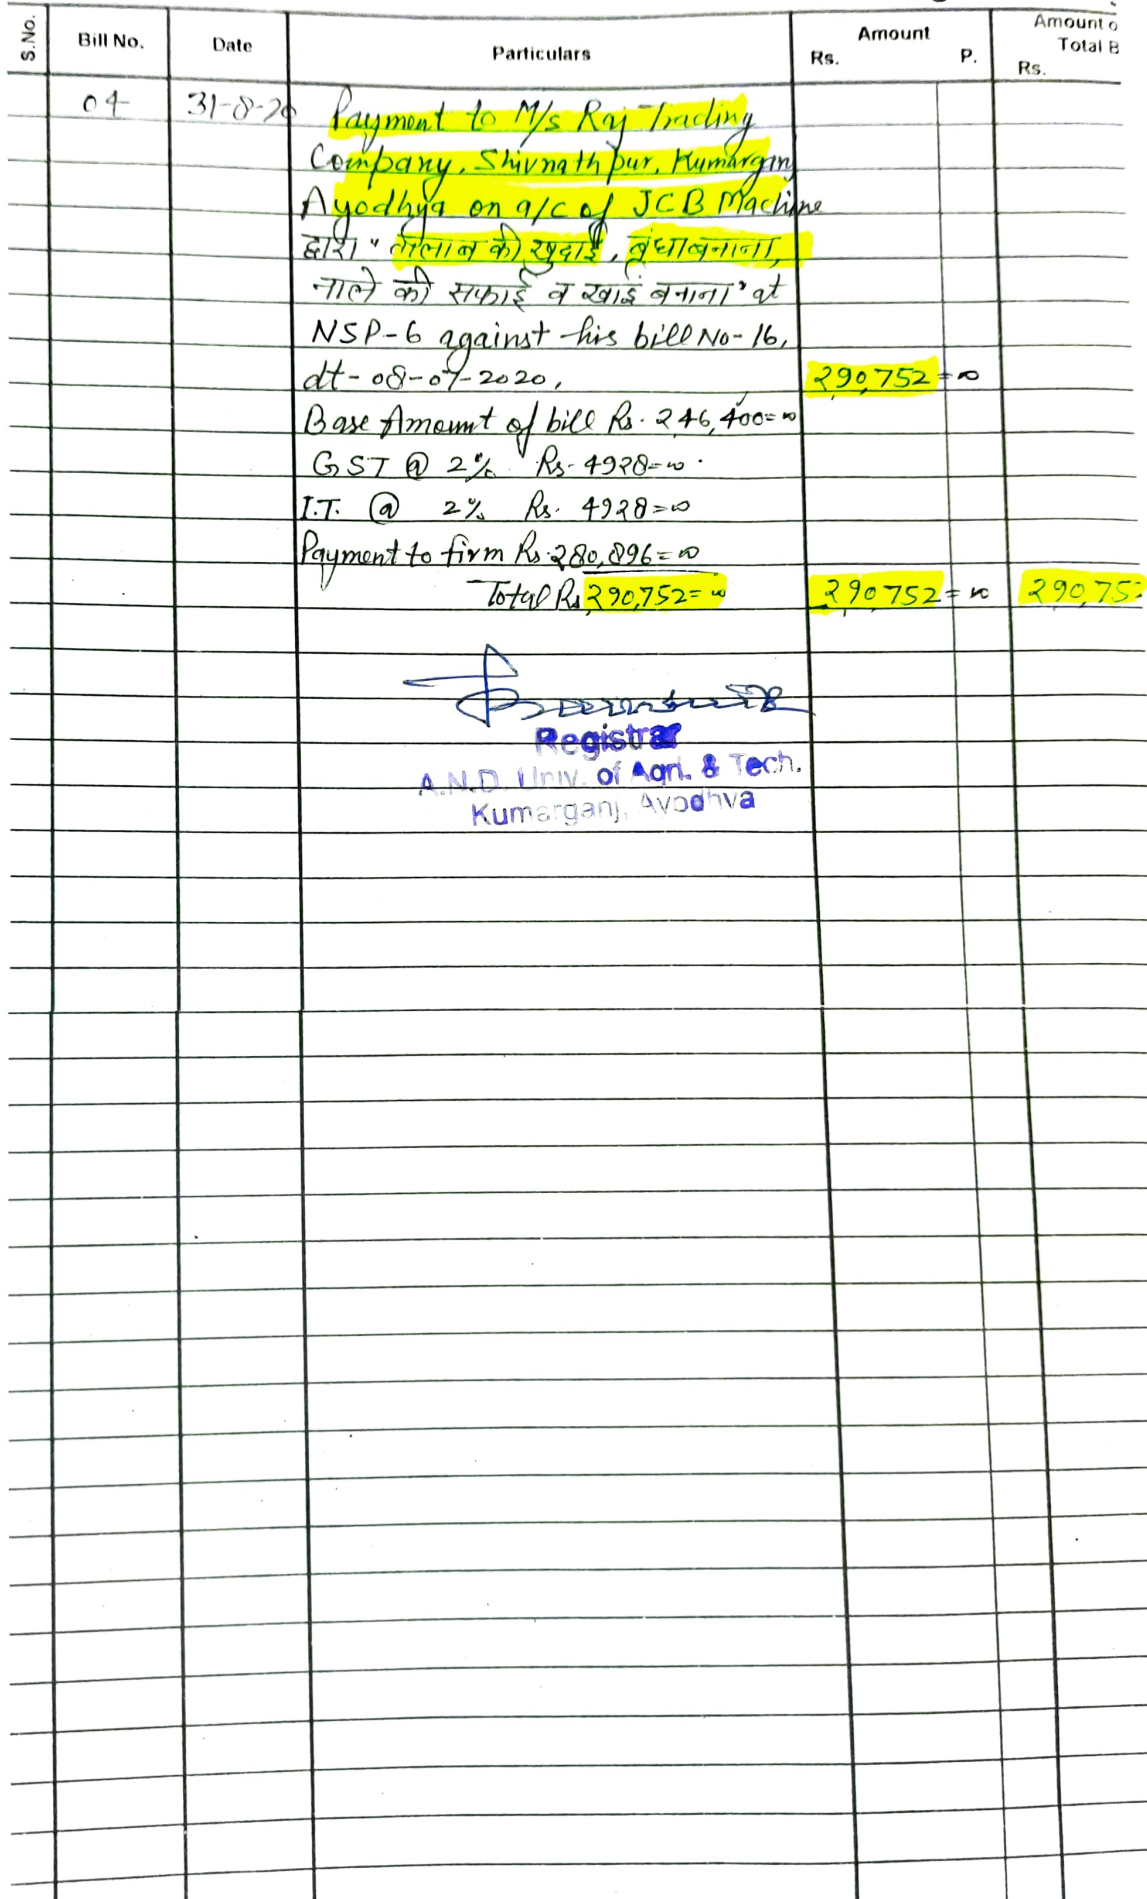 S.No.
Bill No.
Date
Particulars
Amount
Rs.
P.
Amount o
Total B
Rs.
04
31-8-20
Payment to M/s Raj Trading
Company, Shivnathpur, Kumarganj
Ayodhya on a/c of JCB Machine
द्वारा "तालाब की खुदाई, बंधा बनाना,
नाले की सफाई व खाई बनाना" at
NSP-6 against his bill No-16,
dt-08-07-2020,
290,752=00
Base Amount of bill Rs. 246,400=00
GST @ 2% Rs- 4928=00.
I.T. @ 2% Rs. 4928=00
Payment to firm Rs. 280,896=00
Total Rs 290,752=00
290,752=00
290,752
Registrar
A.N.D. Univ. of Agri. & Tech.
Kumarganj, Ayodhya